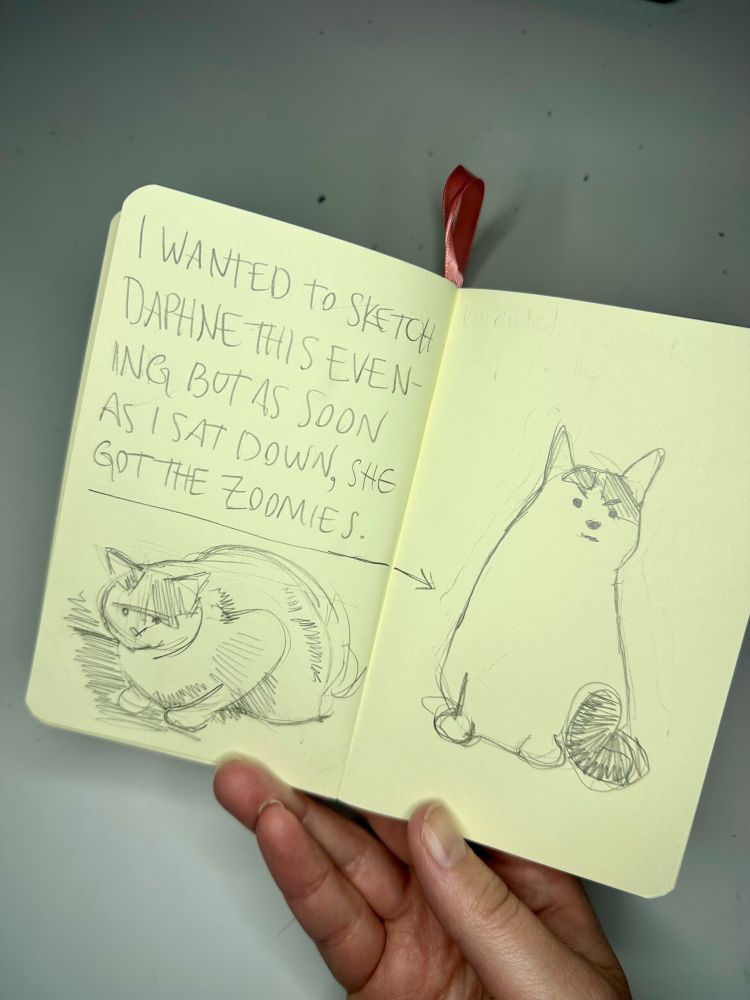 I WANTED TO SKETCH
DAPHNE THIS EVEN-
ING BUT AS SOON
AS I SAT DOWN, SHE
GOT THE ZOOMIES.
I wanted